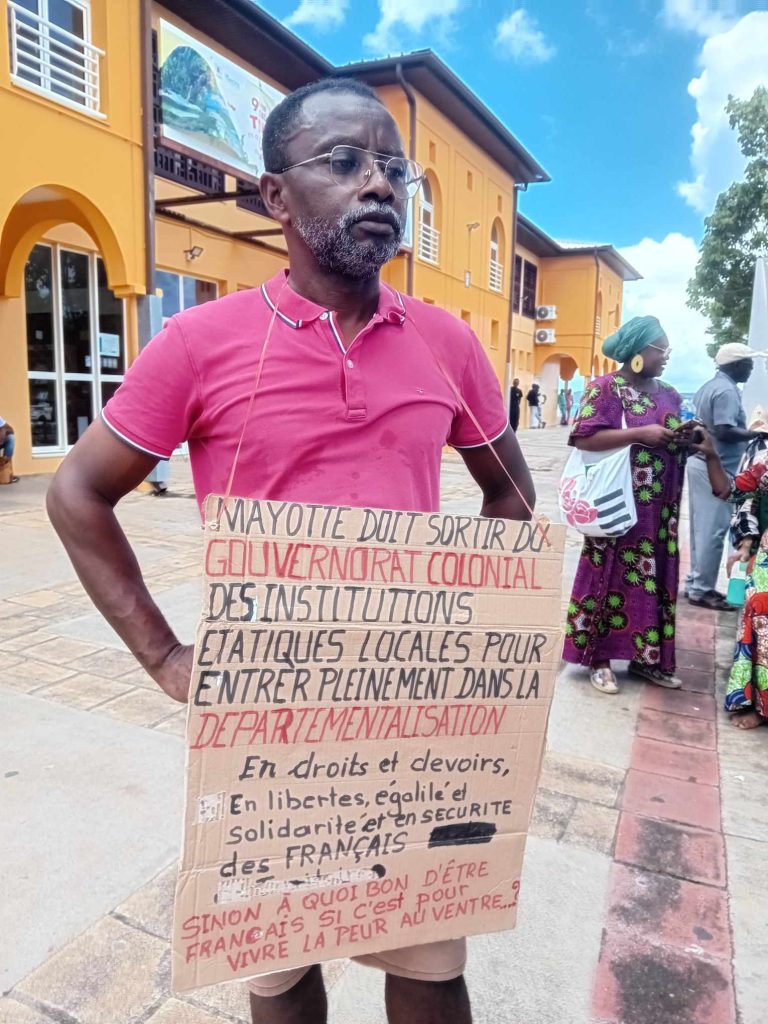 MAYOTTE DOIT SORTIR DU
GOUVERNORAT COLONIAL
DES INSTITUTIONS
ETATIQUES LOCALES POUR
ENTRER PLEINEMENT DANS LA
DEPARTEMENTALISATION
En droits et devoirs,
En libertes, égalité et
solidarité et en SECURITE
des FRANÇAIS
SINON À QUOI BON D'ÊTRE
FRANÇAIS SI C'EST POUR
VIVRE LA PEUR AU VENTRE...?